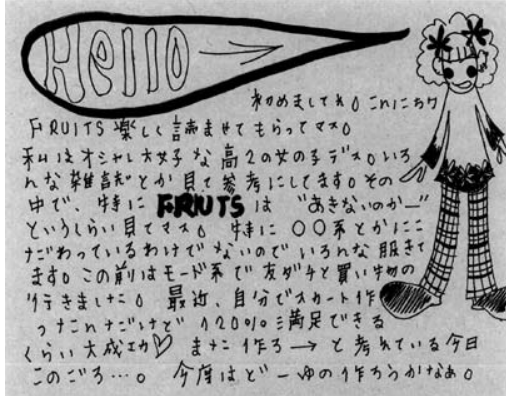 Hello
初めましてネ。こんにちワ
FRUITS 楽しく読ませてもらってマス。
私はオシャレ大好きな高2の女の子デス。いろ
んな雑誌とか見て参考にしてます。その
中で、特に FRUITS は “あきないのかー”
というくらい見てマス。特に ○○系とかにこ
だわっているわけでないのでいろんな服きて
ます。この前はモード系で友ダチと買い物の
行きました。最近、自分でスカート作
ったんだけど 120%満足できる
くらい大成功♡ また作ろ→と考えている今日
このごろ…。今度はどーゆの作ろうかなぁ。